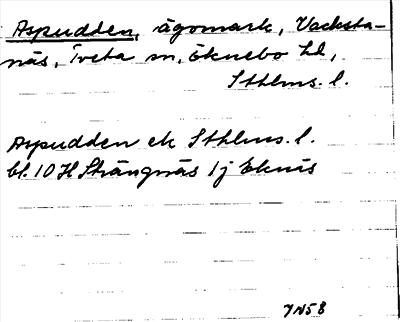 Aspudden, ägomark, Vacksta-
näs, Tveta sn, Öknebo hd,
Sthlms. l.
Aspudden ek Sthlms. l.
bl. 10 H Strängnäs 1j Eknäs
JN58